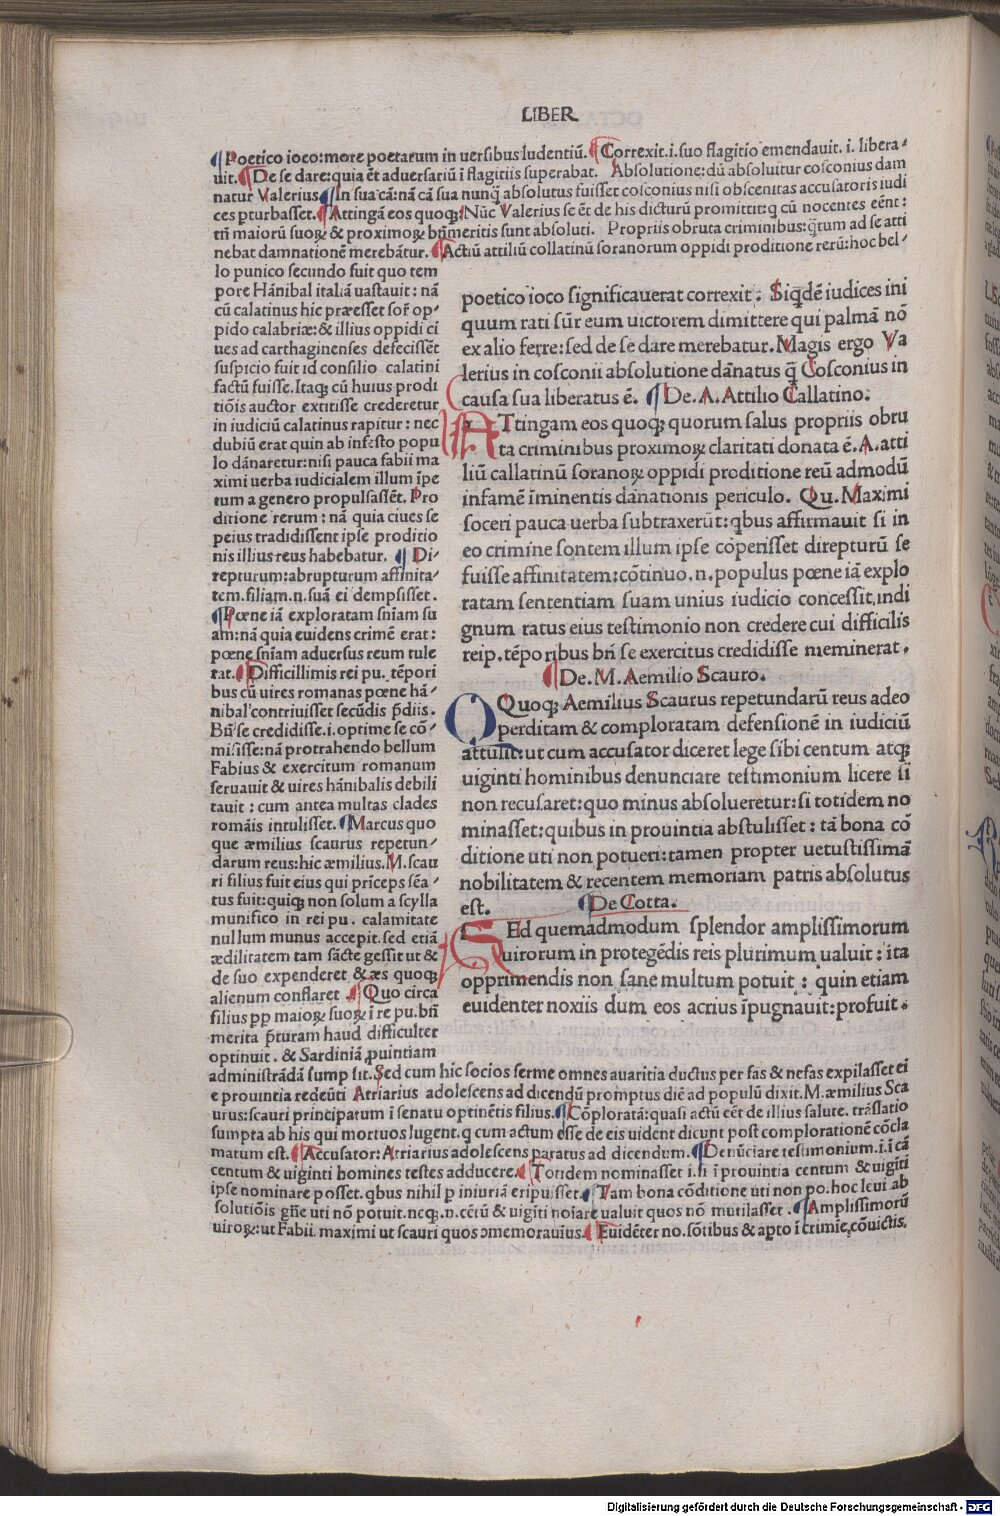 LIBER
¶ Poetico ioco: more poetarum in uersibus ludentiũ. ¶ Correxit .i. suo flagitio emendauit. i. libera-
uit. ¶ De se dare: quia ẽt aduersariũ ĩ flagitiis superabat. Absolutione: dũ absoluitur cosconius dam
natur Valerius ¶ In sua cã: nã cã sua nunq̃ absolutus fuisset cosconius nisi obscenitas accusatoris iudi
ces pturbasset. ¶ Attingã eos quoq;: Nũc Valerius se ẽt de his dicturũ promittit: q cũ nocentes eẽnt:
tñ maiorũ suoꝝ & proximoꝝ bñmeritis sunt absoluti. Propriis obruta criminibus: q̃tum ad se atti
nebat damnationẽ merebãtur. ¶ Actiũ attiliũ collatinũ soranorum oppidi proditione rerũ: hoc bel-
lo punico secundo fuit quo tem
pore Hãnibal italiã uastauit: nã
cũ calatinus hic præesset sor̃ op-
pido calabriæ: & illius oppidi ci
ues ad carthaginenses defecissẽt
suspicio fuit id consilio calatini
factũ fuisse. Itaq; cũ huius prodi
tiõis auctor extitisse crederetur
in iudiciũ calatinus rapitur: nec
dubiũ erat quin ab infesto popu
lo dãnaretur: nisi pauca fabii ma
ximi uerba iudicialem illum ĩpe
tum a genero propulsassẽt. Pro
ditione rerum: nã quia ciues se
peius tradidissent ipse proditio
nis illius reus habebatur. ¶ Di-
repturum: abrupturum affinita-
tem. filiam .n. suã ei dempsisset.
¶ Pœne iã exploratam sñiam su
am: nã quia euidens crimẽ erat:
pœne sñiam aduersus reum tule
rat. ¶ Difficillimis rei pu. tẽpori
bus cũ uires romanas pœne hã-
nibal contriuisset secũdis p̃diis.
Bñ se credidisse .i. optime se cõ-
misisse: nã protrahendo bellum
Fabius & exercitum romanum
seruauit & uires hãnibalis debili
tauit: cum antea multas clades
romãis intulisset. ¶ Marcus quo
que æmilius scaurus repetun-
darum reus: hic æmilius. M. scau
ri filius fuit eius qui pr̃iceps sẽa-
tus fuit: quiq; non solum a scylla
munifico in rei pu. calamitate
nullum munus accepit. sed etiã
ædilitatem tam sãcte gessit ut &
de suo expenderet & æs quoq;
alienum conflaret. ¶ Quo circa
filius pp maioꝝ suoꝝ ĩ re pu. bñ
merita p̃turam haud difficulter
optinuit. & Sardiniã ꝓuintiam
administrãdã sump sit. Sed cum hic socios ferme omnes auaritia ductus per fas & nefas expilasset ei
e prouintia redeũti Atriarius adolescens ad dicendũ promptus diẽ ad populũ dixit. M. æmilius Sca
urus: scauri principatum ĩ senatu optinẽtis filius. ¶ Cõploratã: quasi actũ cẽt de illius salute. trãslatio
sumpta ab his qui mortuos lugent. q cum actum esse de eis uident dicunt post complorationẽ cõcla
matum est. ¶ Accusator: Atriarius adolescens paratus ad dicendum. ¶ Denũciare testimonium .i. ĩ cã
centum & uiginti homines testes adducere. ¶ Totidem nominasset .i. si ĩ prouintia centum & uigĩti
ipse nominare posset. qbus nihil p iniuriã eripuisset. ¶ Tam bona cõditione uti non po. hoc leui ab
solutiõis gñe uti nõ potuit. neq; .n. cẽtũ & uigĩti noĩare ualuit quos nõ mutilasset. ¶ Amplissimorũ
uiroꝝ: ut Fabii maximi ut scauri quos ɔmemorauiũs. ¶ Euidẽter no. sõtibus & apto ĩ crimiẽ cõuictis.
poetico ioco significauerat correxit: Siqdẽ iudices ini
quum rati sũr eum uictorem dimittere qui palmã nõ
ex alio ferre: sed de se dare merebatur. Magis ergo Va
lerius in cosconii absolutione dãnatus q̃ Cosconius in
causa sua liberatus ẽ. ¶ De. A. Attilio Callatino.
ATtingam eos quoq; quorum salus propriis obru
ta criminibus proximoꝝ claritati donata ẽ. A. atti
liũ callatinũ soranoꝝ oppidi proditione reũ admodũ
infamẽ ĩminentis dãnationis periculo. Qu. Maximi
soceri pauca uerba subtraxerũt: qbus affirmauit si in
eo crimine sontem illum ipse cõperisset direpturũ se
fuisse affinitatem: cõtinuo .n. populus pœne iã explo
ratam sententiam suam unius iudicio concessit. indi
gnum ratus eius testimonio non credere cui difficilis
reip. tẽporibus bñ se exercitus credidisse meminerat.
¶ De. M. Aemilio Scauro.
QQuoq; Aemilius Scaurus repetundarũ reus adeo
perditam & comploratam defensionẽ in iudiciũ
attulit: ut cum accusator diceret lege sibi centum atq;
uiginti hominibus denunciare testimonium licere si
non recusaret: quo minus absolueretur: si totidem no
minasset: quibus in prouintia abstulisset: tã bona cõ
ditione uti non potueri: tamen propter uetustissimã
nobilitatem & recentem memoriam patris absolutus
est. ¶ De Cotta.
SEd quemadmodum splendor amplissimorum
uirorum in protegẽdis reis plurimum ualuit: ita
opprimendis non sane multum potuit: quin etiam
euidenter noxiis dum eos acrius ĩpugnauit: profuit.
Digitalisierung gefördert durch die Deutsche Forschungsgemeinschaft - DFG